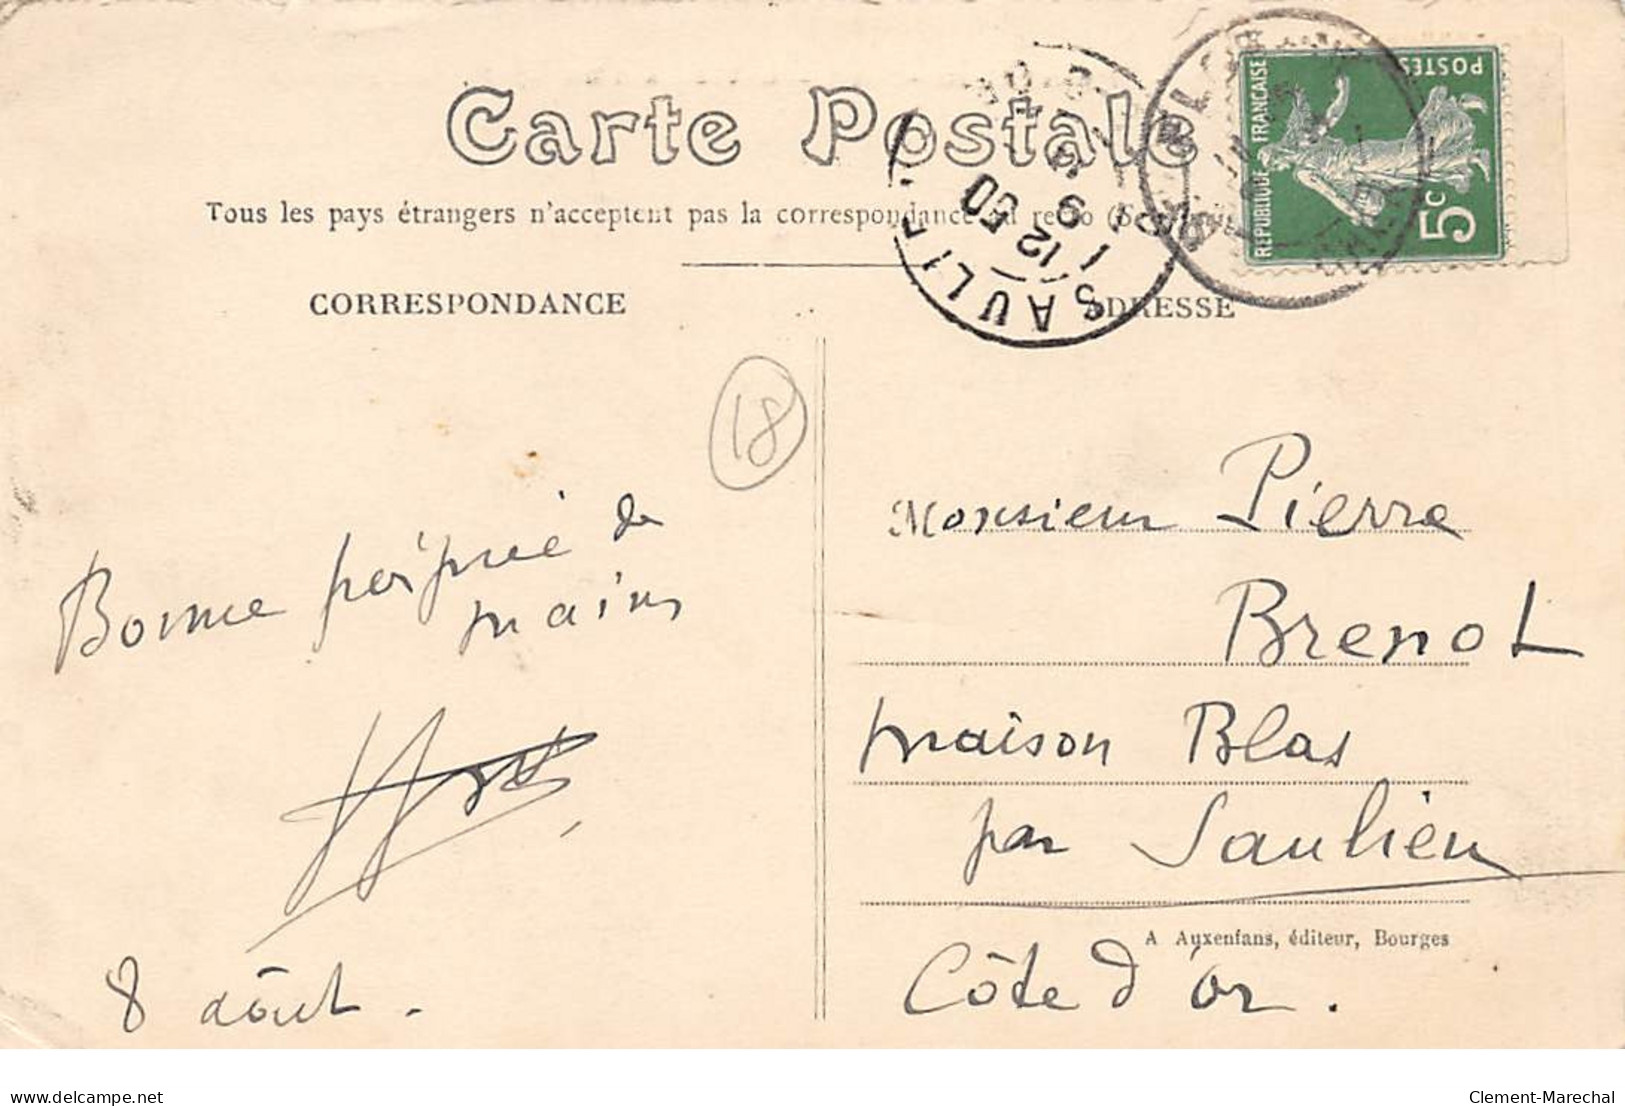 Carte Postale
Tous les pays étrangers n'acceptent pas la correspondance au recto
CORRESPONDANCE
ADRESSE
SAULIEU
12 50
9
RÉPUBLIQUE FRANÇAISE
POSTES
5c
18
Bonne poignée de
mains
8 août.
Monsieur Pierre
Brenot
maison Blas
par Saulieu
Côte d'or.
A Auxenfans, éditeur, Bourges
delcampe.net
Clement-Marechal